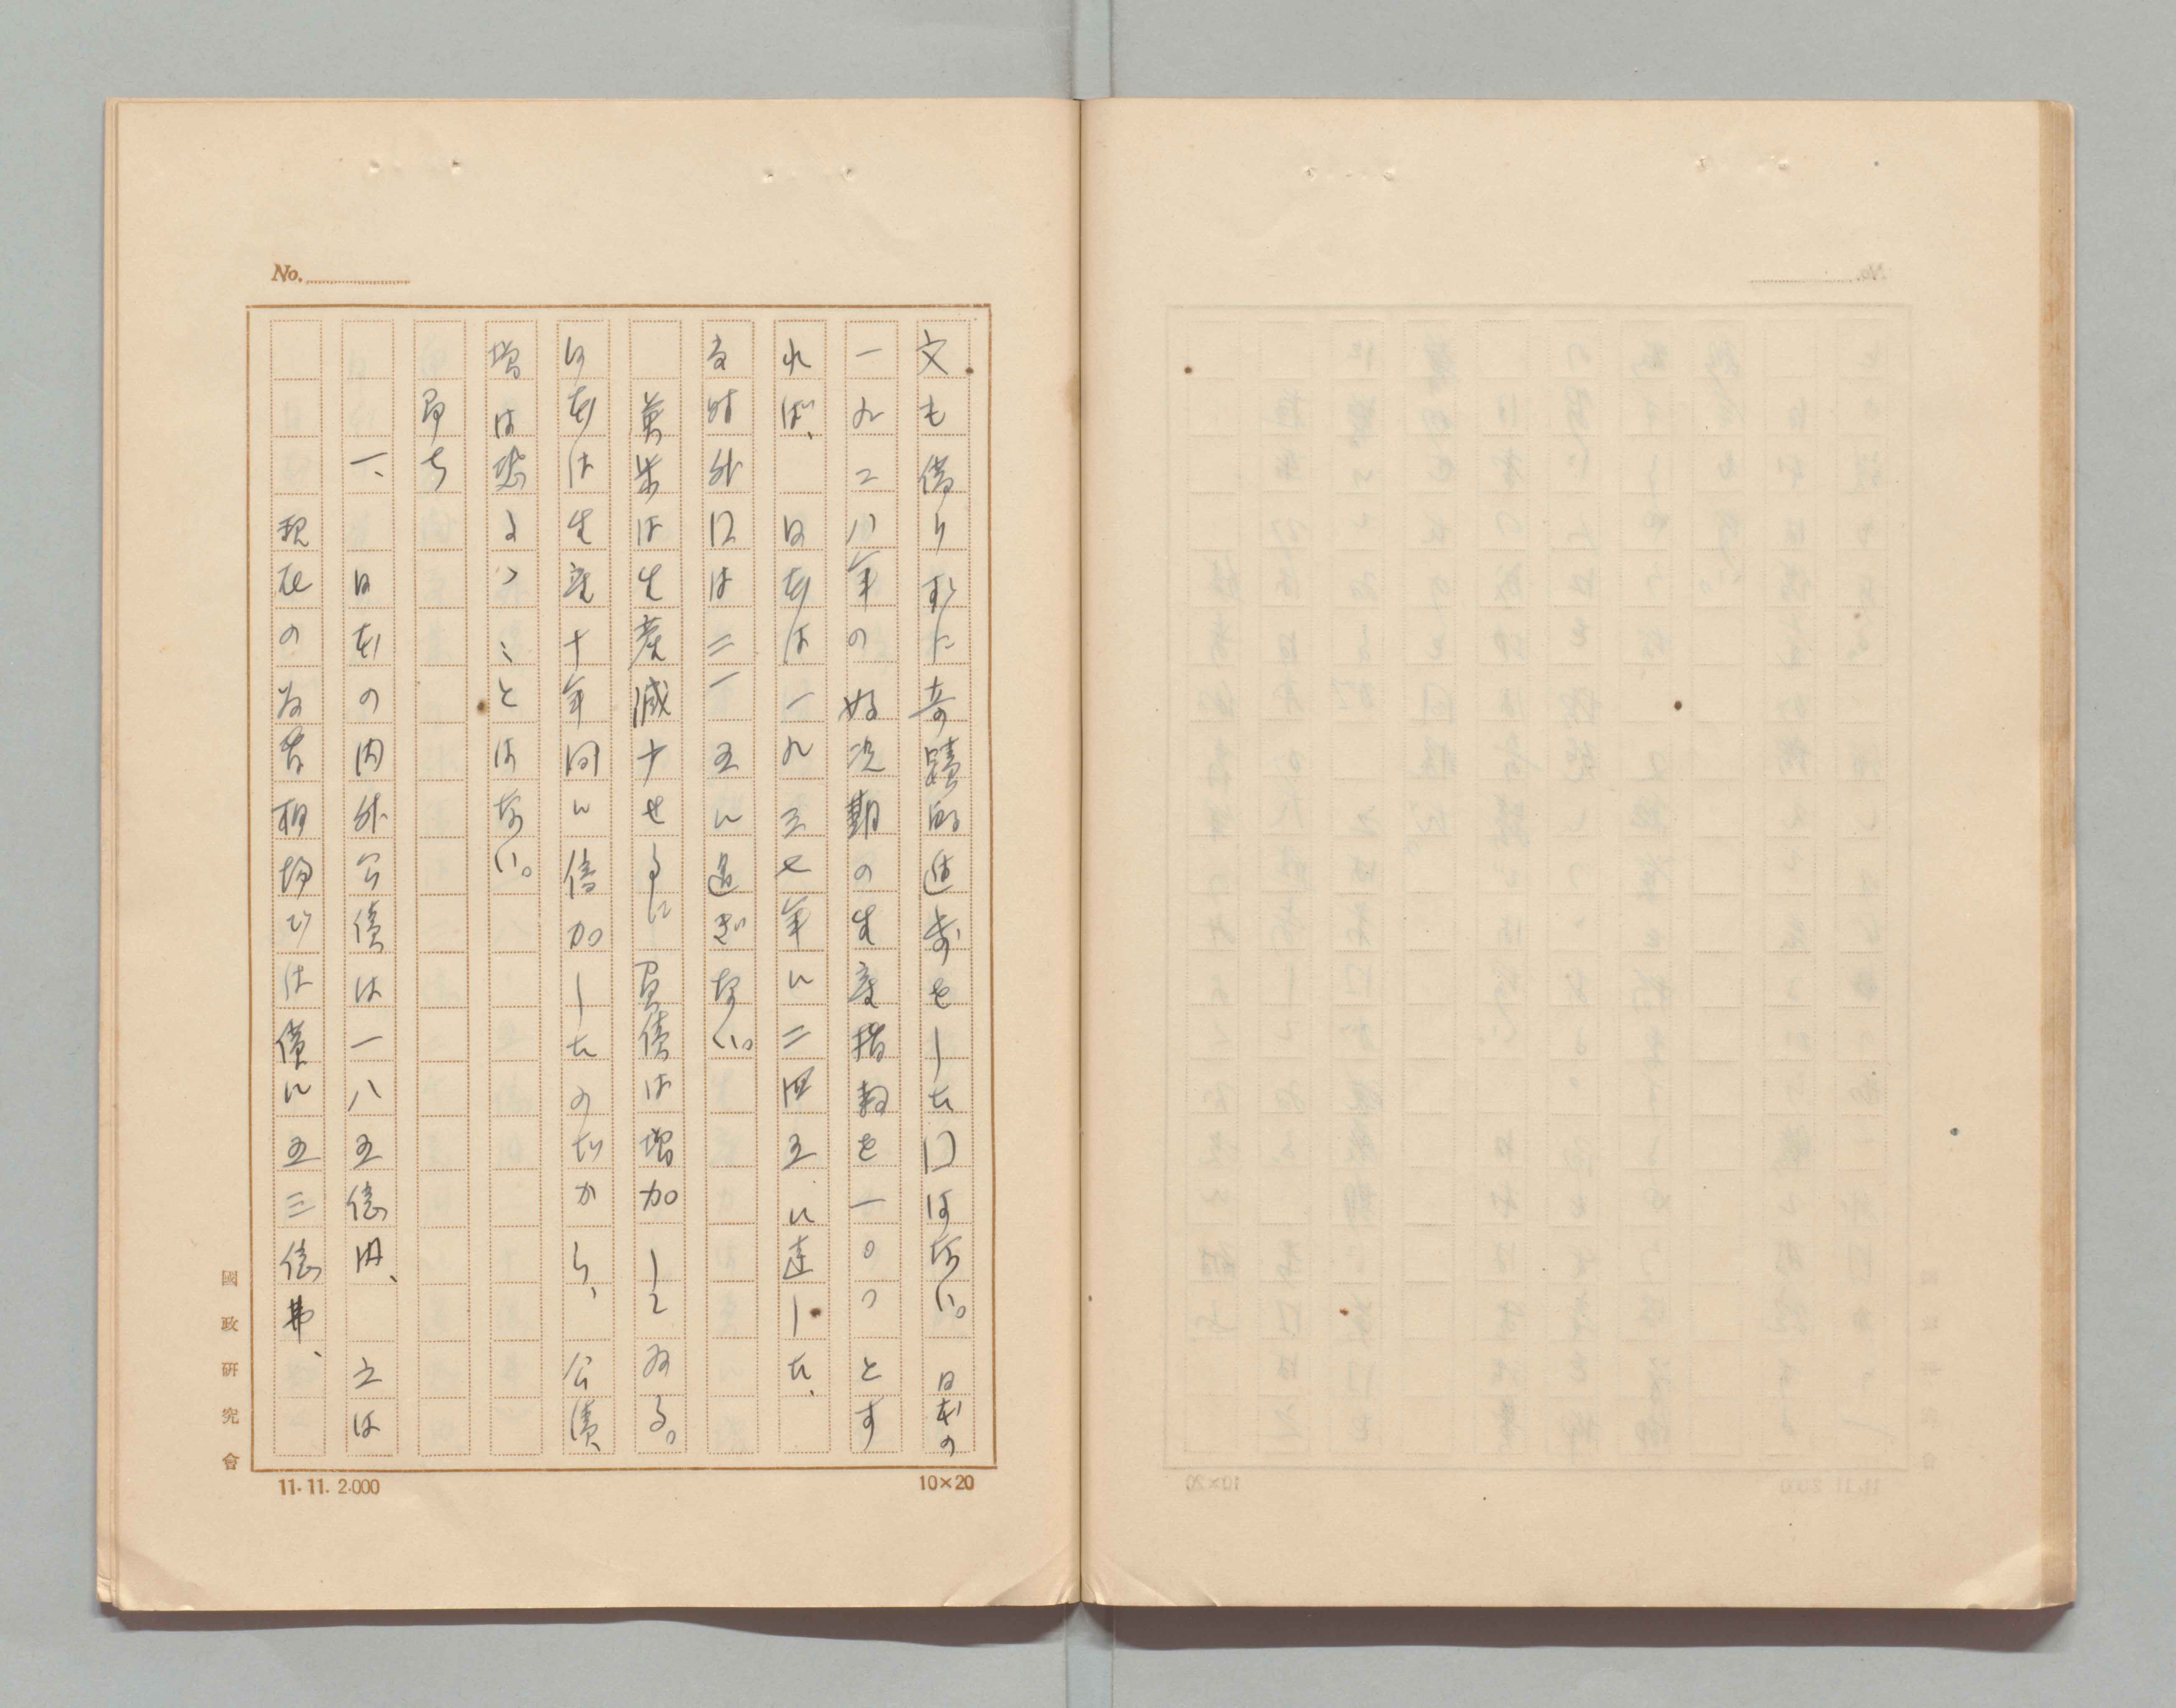 No.
文も借りずに奇蹟的進歩をした国はない。日本の
一九二八年の好況期の生産指数を一〇〇とす
れば、日本は一九三七年に二四五に達した、
時外国は二一五に過ぎない。
英米は生産減少せるに負債は増加してゐる。
日本は生産十年間に倍加したのだから、公債
増は恐るゝことはない。
即ち
一、日本の内外公債は一八五億円、之は
現在の為替相場では僅に五三億弗、
國政研究會
11. 11. 2.000
10×20